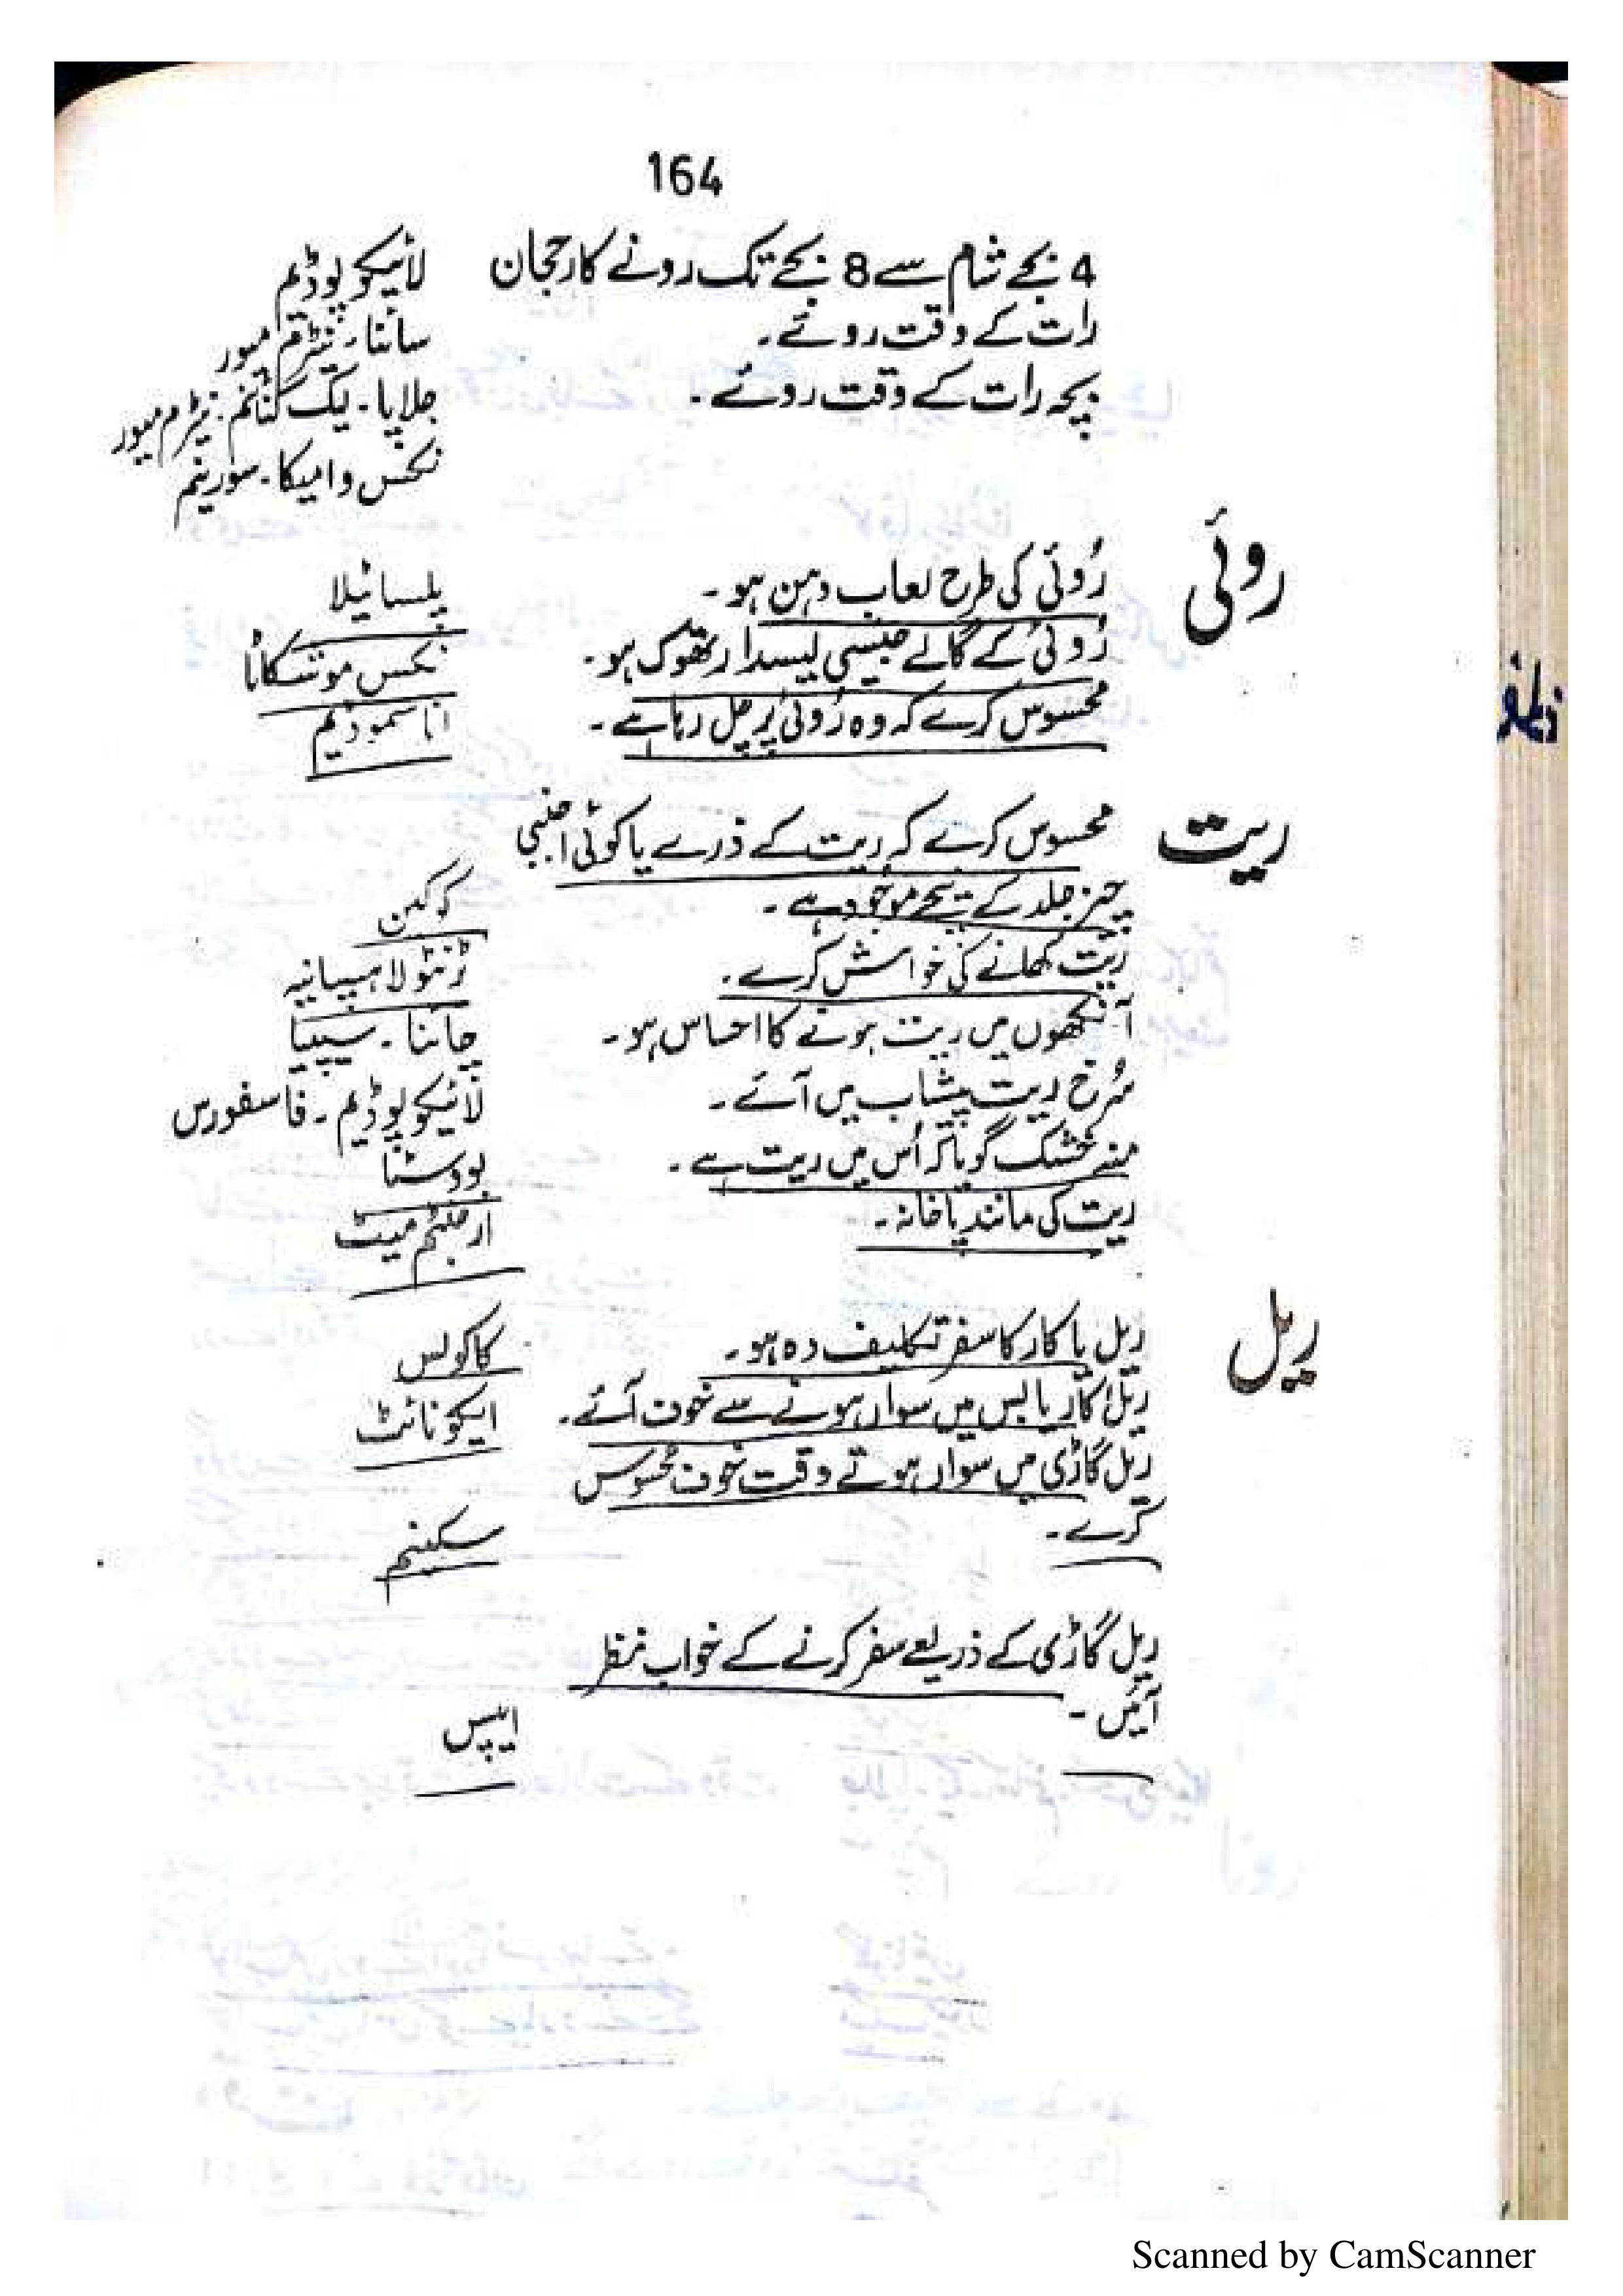 164
4 بجے شام سے 8 بجے تک رونے کا رجحان لائیکوپوڈیم
رات کے وقت روئے۔ سائنا۔ نیٹرم میور
بچہ رات کے وقت روئے۔ جلاپا۔ لیک کنائنم۔ نیٹرم میور
نکس وامیکا۔ سورینم
روئی
رُوئی کی طرح لعاب دہن ہو۔ پلساٹیلا
رُوئی کے گالے جیسی لیسدار تھوک ہو۔ نکس موشکاٹا
محسوس کرے کہ وہ رُوئی پر چل رہا ہے۔ اناسموڈیم
ریت
محسوس کرے کہ ریت کے ذرے یا کوئی اجنبی
چیز جلد کے نیچے موجود ہے۔ کوکین
ریت کھانے کی خواہش کرے۔ ٹرنٹولا ہسپانیہ
آنکھوں میں ریت ہونے کا احساس ہو۔ چائنا۔ سیپیا
سُرخ ریت پیشاب میں آئے۔ لائیکوپوڈیم۔ فاسفورس
منہ خشک گویا کہ اُس میں ریت ہے۔ بووسٹا
ریت کی مانند پاخانہ۔ ارجنٹم میٹ
ریل
ریل یا کار کا سفر تکلیف دہ ہو۔ کاکولس
ریل، کار یا بس میں سوار ہونے سے خوف آئے۔ ایکونائٹ
ریل گاڑی میں سوار ہوتے وقت خوف محسوس
کرے۔ سکینم
ریل گاڑی کے ذریعے سفر کرنے کے خواب نظر
آئیں۔ ایپس
Scanned by CamScanner